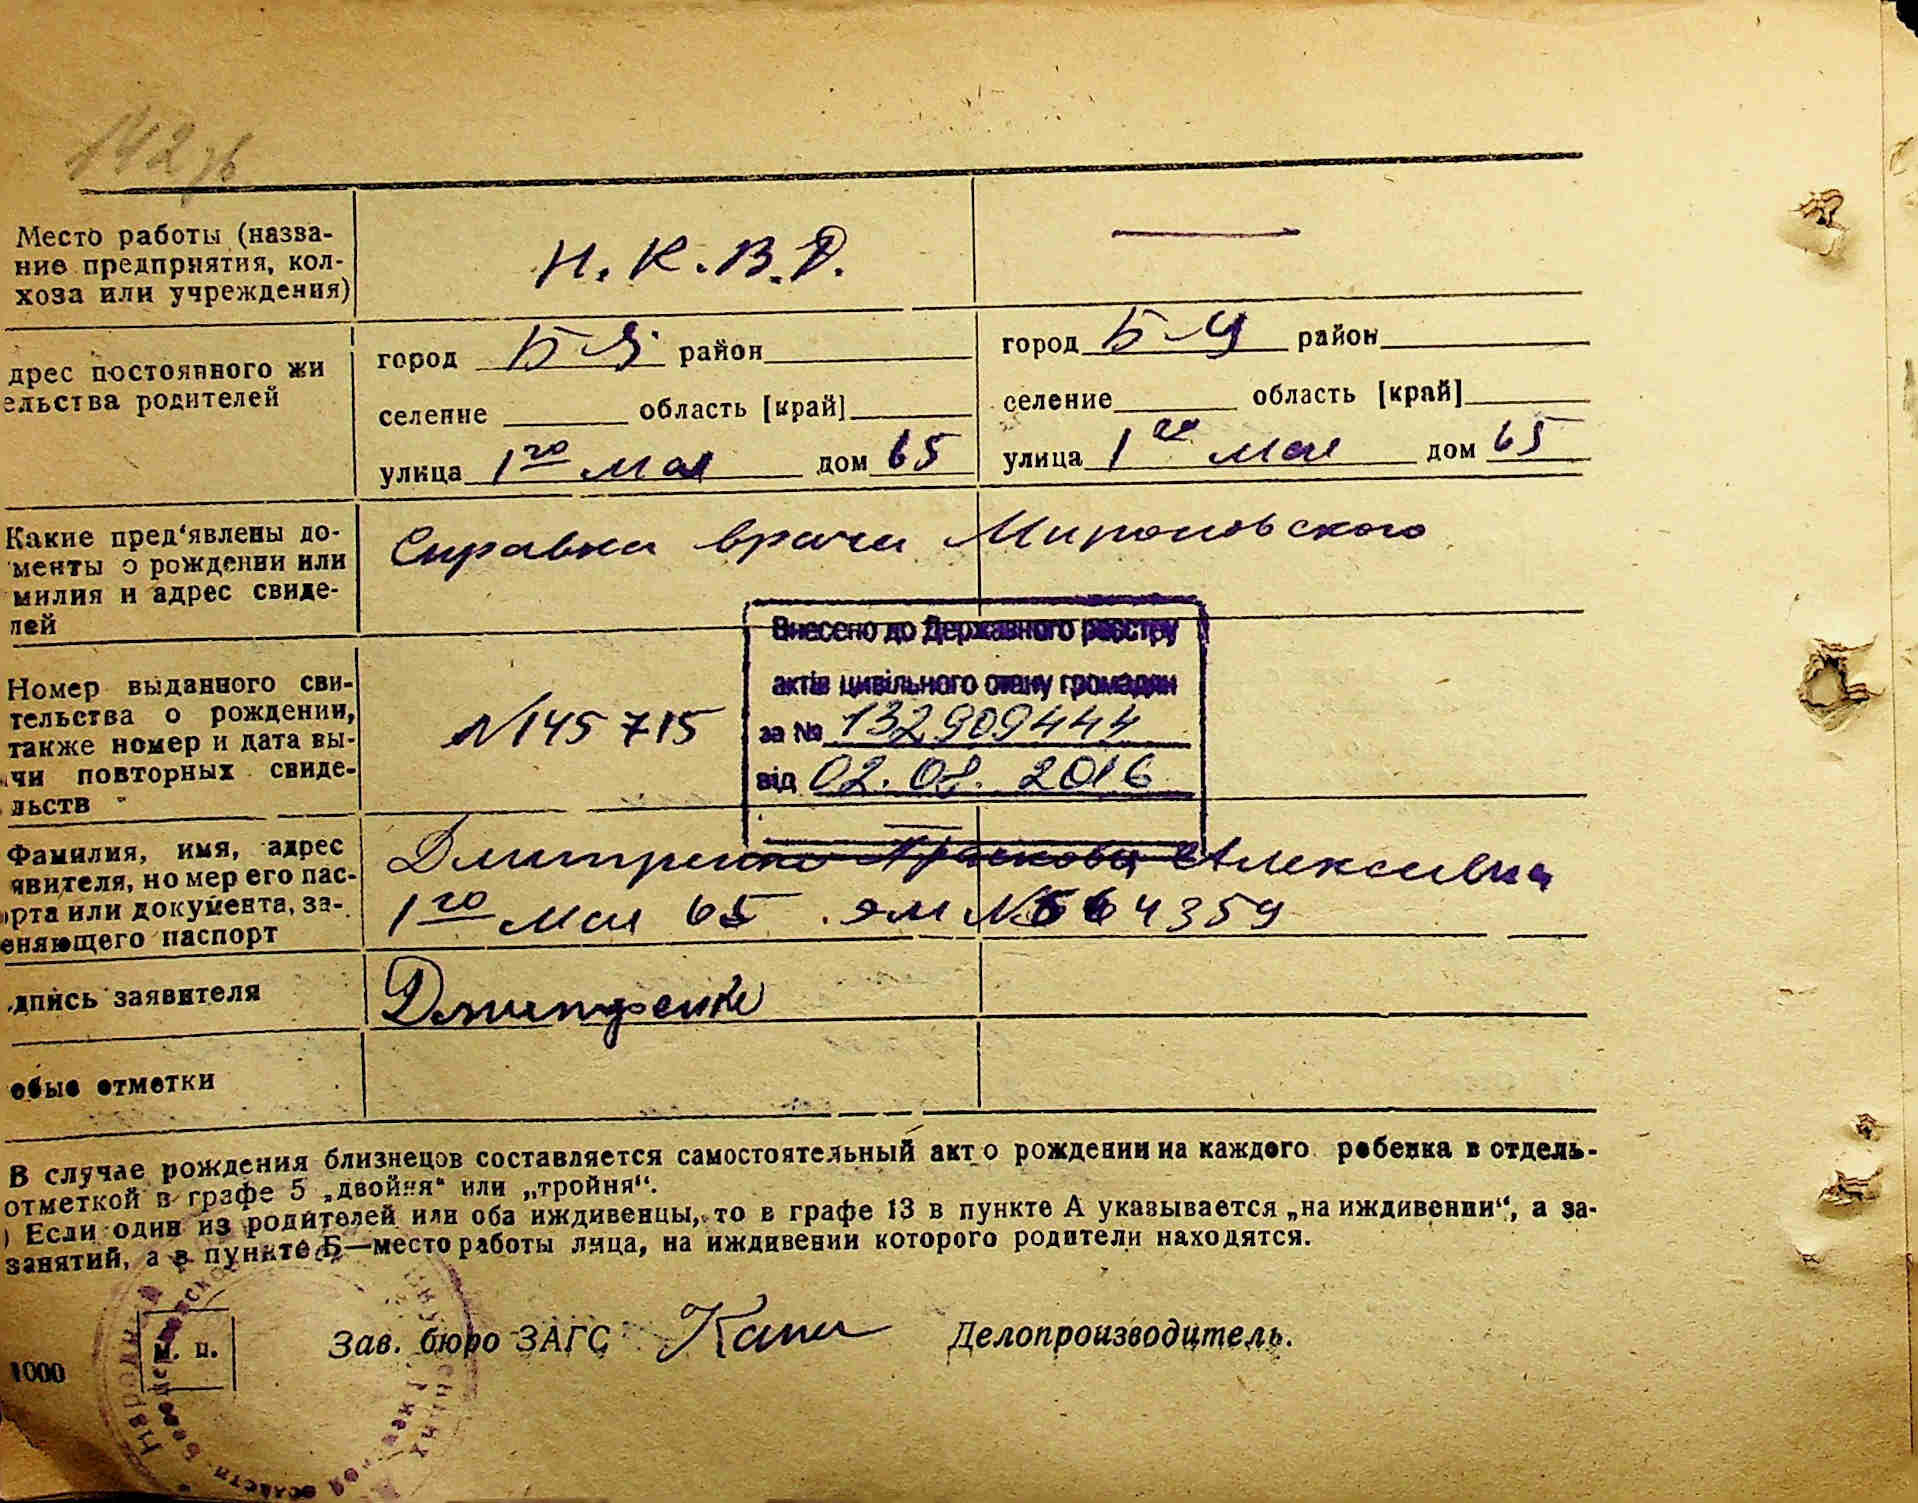 142
Место работы (назва-
ние предприятия, кол-
хоза или учреждения)
Н.К.В.Д.
дрес постоянного жи
ельства родителей
город Б-Я район
селение область [край]
улица 1го Мая дом 65
город Б-Я район
селение область [край]
улица 1го Мая дом 65
Какие пред‘явлены до-
менты о рождении или
милия и адрес свиде-
лей
Справка врача Мироновского
Номер выданного сви-
тельства о рождении,
также номер и дата вы-
чи повторных свиде-
льств
N145715
Внесено до Державного реєстру
актів цивільного стану громадян
за № 132909444
від 02.08.2016
Фамилия, имя, адрес
явителя, номер его пас-
орта или документа, за-
еняющего паспорт
Дмитренко Прасковья Алексеевна
1го Мая 65 ЭМ №564359
дпись заявителя
Дмитренко
обые отметки
В случае рождения близнецов составляется самостоятельный акт о рождении на каждого ребенка в отдель-
отметкой в графе 5 „двойня“ или „тройня“.
) Если один из родителей или оба иждивенцы, то в графе 13 в пункте А указывается „на иждивении“, а за-
занятий, а в пункте Б—место работы лица, на иждивении которого родители находятся.
Зав. бюро ЗАГС Делопроизводитель.
М. П.
1000